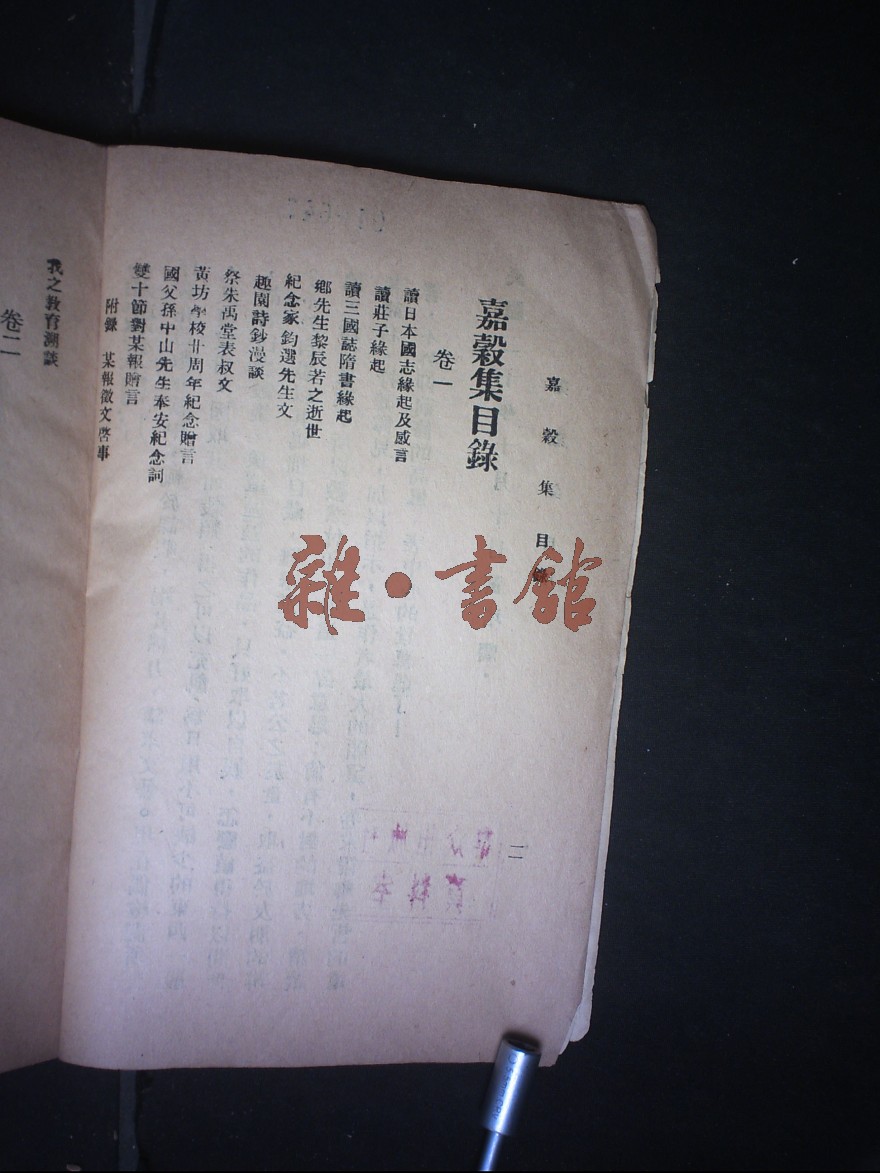 嘉穀集目
嘉穀集目錄
卷一
讀日本國志緣起及感言
讀莊子緣起
讀三國誌隋書緣起
鄉先生黎辰若之逝世
紀念家鈞選先生文
趣園詩鈔漫談
祭朱禹堂表叔文
黃坊學校廿周年紀念贈言
國父孫中山先生奉安紀念詞
雙十節對某報贈言
附錄 某報徵文啓事
卷二
我之教育溯談
二
雜·書館